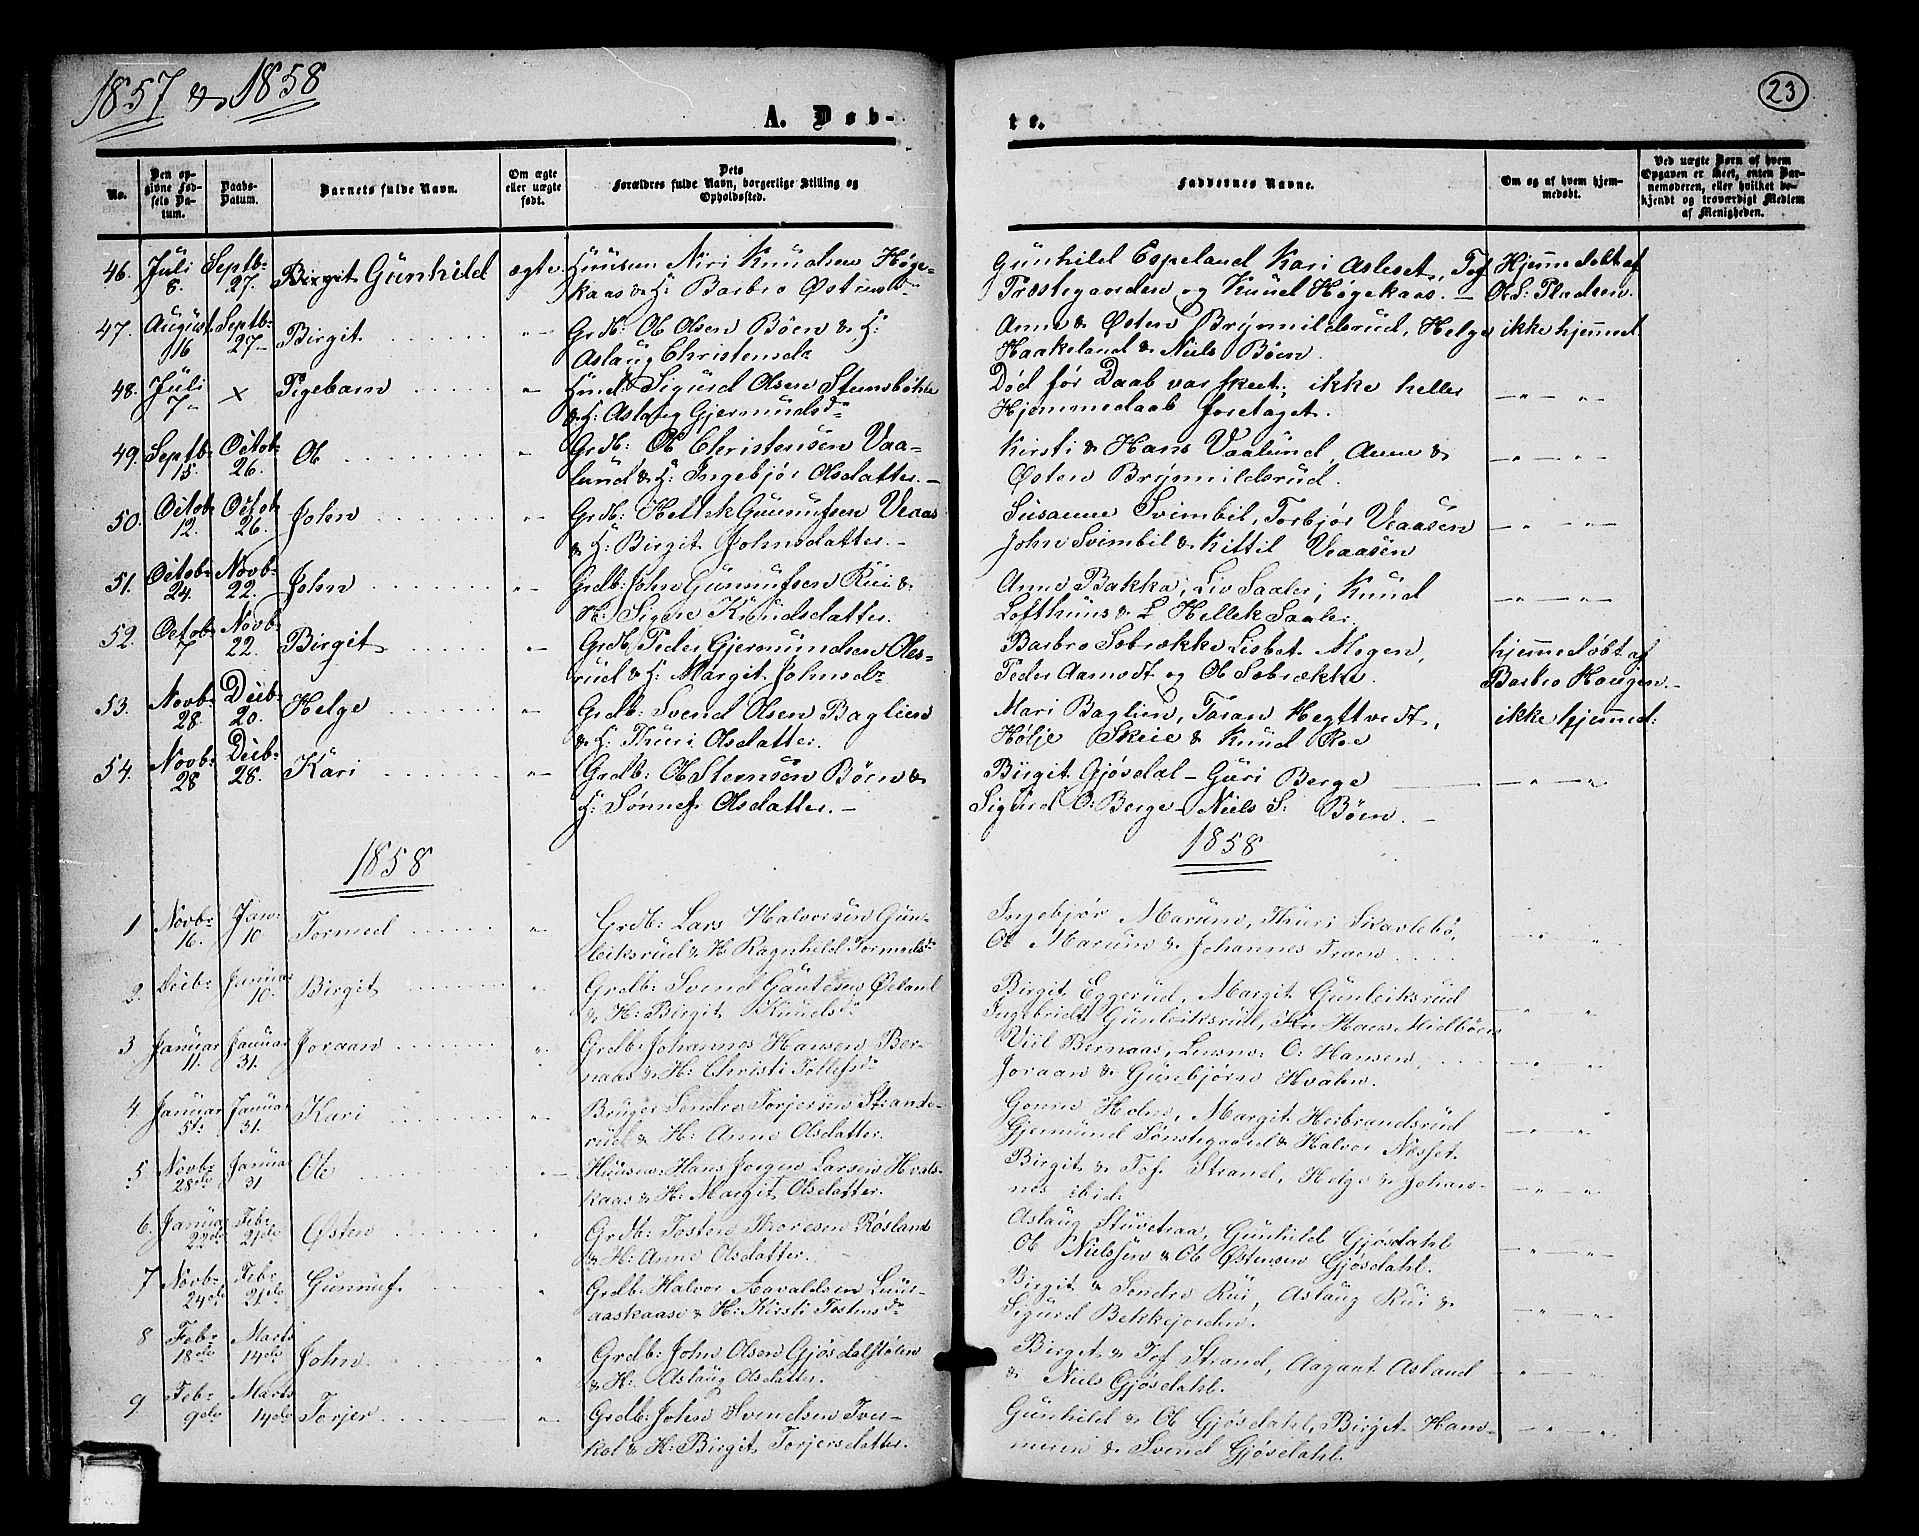 1857 & 1858
23
A. Døb-
te.
No.
Den op-
givne Fød-
sels Da-
tum.
Daabs-
Datum.
Barnets fulde Navn.
Om ægte
eller uægte
født.
Dets
Forældres fulde Navn, borgerlige Stilling og
Opholdssted.
Faddernes Navne.
Om og af hvem hjem-
medøbt.
Ved uægte Børn af hvem
Opgaven er skeet, enten Bar-
nemoderen, eller hvilket be-
kjendt og troværdigt Medlem
af Menigheden.
46. Juli 8. Septb: 27. Birgit Gunhild ægte Huusm Niri Knudsen Høge-
kaas & H: Barbro Østensd:
Gunhild Espeland Kari Asleset, Tof
Præstegaarden og Knud Høgekaas. —
Hjemmedøbt af
O. S. Pladsen.
47. August 16 Septb: 27 Birgit Grdb: Ob Olsen Bøen & H:
Aslaug Christensd:
Anne & Østen Brynnildsrud, Helge
Haakeland & Niels Bøen.
ikke hjemmed
48. Juli 7 × Pigebarn Sigurd Olsen
& H: Aslaug Gjermundsd:
Død før Daab var skeet, ikke heller
Hjemmedaab foretaget.
49. Septb: 15. Octob: 26. Ob Grdb: Ob Christensen Vaa-
lund & H: Ingebjør Olsdatter. —
Kirsti & Hans Vaalund, Anne &
Østen Brynnildsrud.
50. Octob: 12. Octob: 26. John Grdb: Hellek Gunnufsen Veaas
& H: Birgit Johnsdatter. —
Susanne Svimbil, Torbjør Veaasen
John Svimbil & Kittil Veaasen
51. Octob: 24. Novb: 22. John Grdb: John Gunnufsen Rui &
H: Signe Knudsdatter.
Anne Bakka, Liv Saaler, Knud
Lofthuus & L. Hellek Saaler.
52. Octob: 7 Novb: 22. Birgit Grdb: Peder Gjermundsen Oles-
rud & H: Margit Johnsd:
Barbro Sobrække Lisbet Mogen,
Peder Aamodt og Ob Sobrække.
hjemmedøbt af
Barbro Hougen —
53. Novb: 28 Decb: 20. Helge Grdb: Svend Olsen Baglien
& H: Thuri Olsdatter.
Mari Baglien, Taran Hegttvedt,
Hølje Skeie & Knud Roe
ikke hjemmed:
54. Novb: 28 Decb: 28. Kari Grdb: Ob Steensen Bøen &
H: Sønnef Olsdatter. —
Birgit Gjøsdal — Guri Berge
Sigurd O: Berge — Niels S: Bøen. —
1858
1858
1 Novb: 16. Jan: 10 Tormod Grdb: Lars Halvorsen Gun-
leiksrud & H Ragnhild Tormodsd:
Ingebjør Marum, Thuri Skavlebø,
Ob Marum & Johannes Traen
2. Decb: Januar 10. Birgit Grdb: Svend Gautesen Øeland
& H: Birgit Knudsd:
Birgit Eggerud, Margit Gunleiksrud
Ingebricht Gunleiksrud, Hans Midbøen
3 Januar 11. Januar 31. Joraan Grdb: Johannes Hansen Ber-
naas & H: Christi Tollefsd:
Bernaas, O: Hansen,
Joraan & Gunbjørn Hvalen.
4. Januar 5te Januar 31. Kari Bruger Sondre Torjersen Strande-
rud & H: Anne Olsdatter.
Gonne Holm, Margit Herbrandsrud
Gjermund Sønstegaard & Halvor Nøsset
5 Novb: 28de Januar 31 Ob Huusm: Hans Jørgen Larsen Hvals-
kaas & H: Margit Olsdatter.
Birgit & Tof Strand, Helge & Johan-
nes ibid:
6. Januar 22de Feb: 21de Østen Grdb: Tosten Thoresen Røsland
& H: Anne Olsdatter.
Aslaug Stuvetraa, Gunhild Gjøsdahl
Ob Nielssen & Ob Østensen Gjøsdahl.
7 Novb: 24de Feb: 21de Gunnuf Grdb: Halvor Aavaldsen Luur-
aaskaase & H: Kirsti Tostensd:
Birgit & Sondre Rui, Aslaug Rui &
Sigurd Bekkejorden.
8 Feb: 18de Marts 14de John Grdb: John Olsen Gjøsdalstølen
& H: Aslaug Olsdatter.
Birget & Tof Strand, Aagaat Asland
& Niels Gjøsdahl.
9. Feb: 9de Marts 14de Torjer Grdb: John Svendsen Tver-
kol & H: Birgit Torjersdatter.
Gunhild & Ob Gjøsdahl, Birget Ham-
meren & Svend Gjøsdahl.